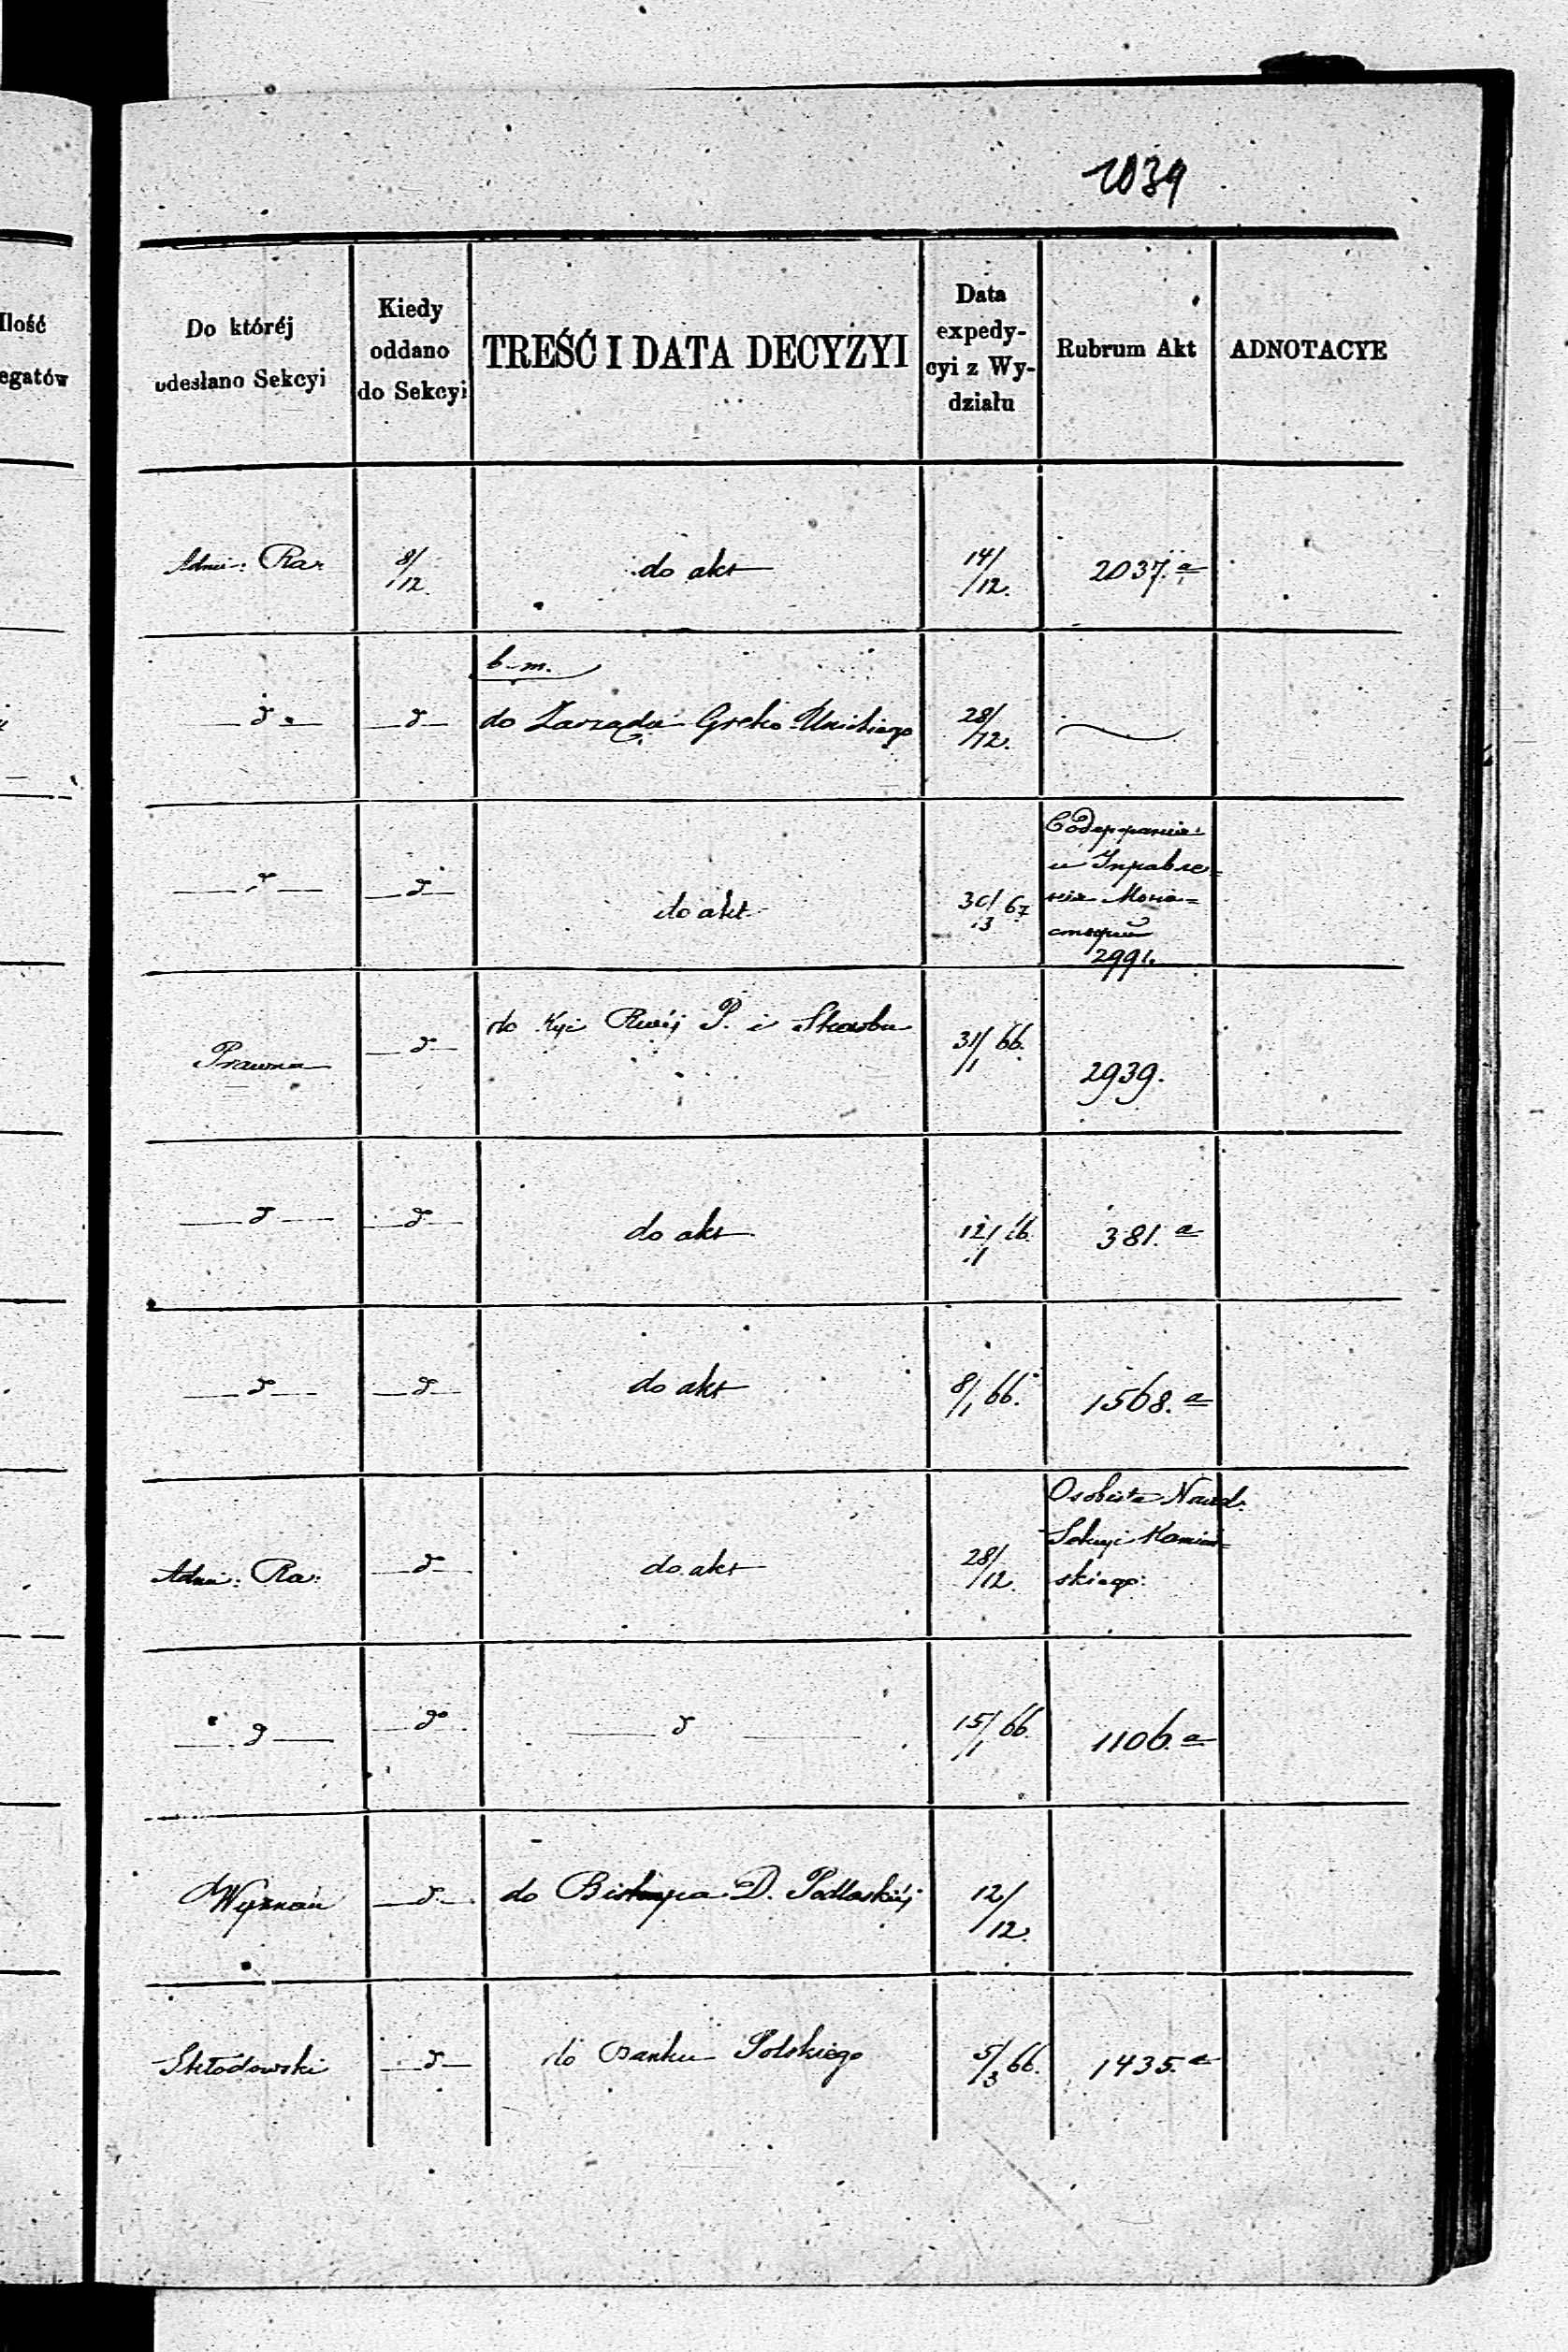 1039
Ilość
egatów
Do któréj
odesłano Sekcyi
Kiedy
oddano
do Sekcyi
TREŚĆ I DATA DECYZYI
Data
expedy-
cyi z Wy-
działu
Rubrum Akt
ADNOTACYE
Admi: Ra:
8/12.
do akt
14/12.
2037.a
b. m.
d
d
do Zarządu Greko-Unickiego
28/12.
d
d
do akt
30/3 67
2991.
Prawna
d
do Kyi Rwéj P. i Skarbu
31/1 66.
2939.
d
d
do akt
12/1 66.
381.a
d
d
do akt
8/1 66.
1568.a
Admi: Ra:
d
do akt
28/12.
Osobiste Nacz.
Sekcyi Kamień=
skiego.
d
do
d
15/1 66.
1106.a
Wyznań
d
do Biskupa D. Podlaskiéj
12/12.
Skłodowski
d
do Banku Polskiego
5/3 66.
1435.a